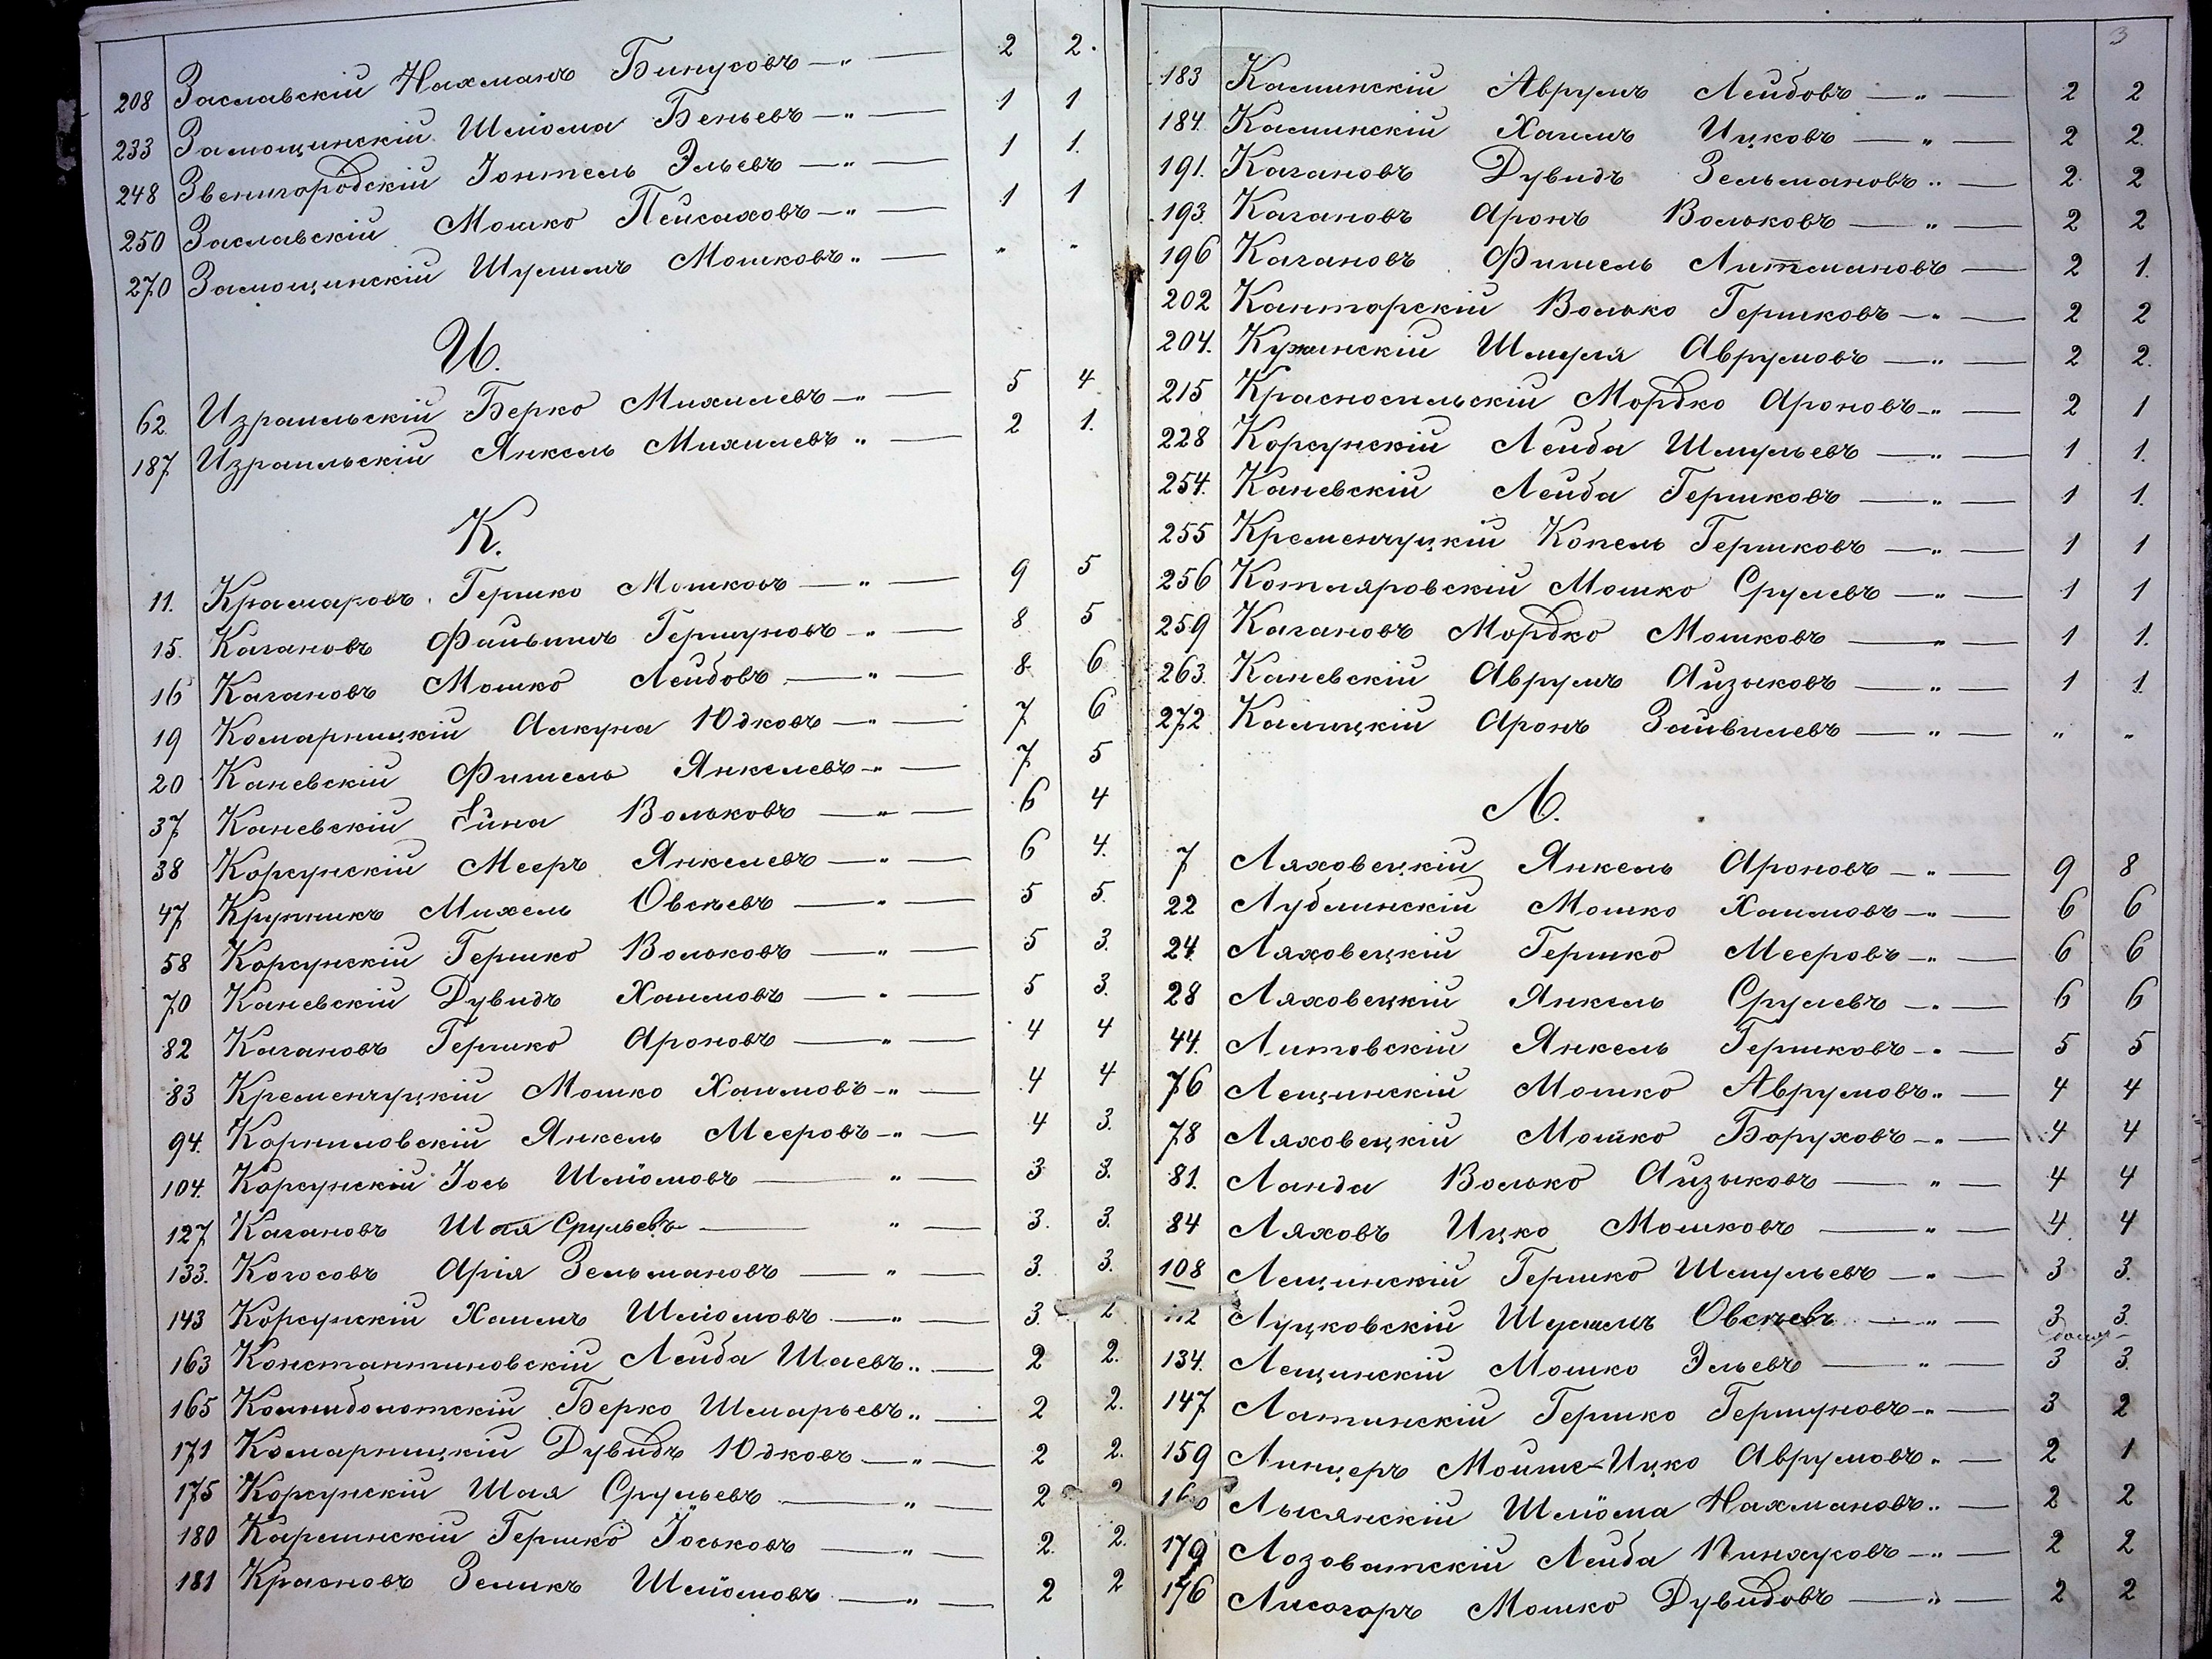 208 Заславскій Нахманъ Бинусовъ —„— 2 2.
233 Замощинскій Шліома Беньевъ —„— 1 1
248 Звенигородскій Іонтель Эльевъ —„— 1 1.
250 Заславскій Мошко Пейсаховъ —„— 1 1
270 Замощинскій Шулимъ Мошковъ „— „ „
И.
62. Израильскій Берко Михилевъ —„— 5 4
187 Израильскій Янкель Михилевъ „— 2 1.
К.
11. Крамаровъ Гершко Мошковъ —„— 9 5
15. Кагановъ Файвишъ Гершуновъ —„— 8 5
16 Кагановъ Мошко Лейбовъ —„— 8 6
19 Комарницкій Алкуна Юдковъ —„— 7 6
20 Каневскій Фишель Янкелевъ —„— 7 5
37 Каневскій Вольковъ —„— 6 4
38 Корсунскій Мееръ Янкелевъ —„— 6 4.
47 Крупникъ Михель Овсѣевъ —„— 5 5.
58 Корсунскій Гершко Вольковъ —„— 5 3.
70 Каневскій Дувидъ Хаимовъ —„— 5 3.
82 Кагановъ Гершко Ароновъ —„— 4 4
83 Кременчуцкій Мошко Хаимовъ —„— 4 4
94. Корниловскій Янкель Мееровъ —„— 4 3.
104. Корсунскій Іось Шліомовъ —„— 3 3.
127 Кагановъ Шая Срульевъ —„— 3. 3.
133. Когосовъ Арія Зельмановъ —„— 3. 3.
143 Корсунскій Хаимъ Шліомовъ —„— 3. 2
163 Константиновскій Лейба Шаевъ „— 2 2.
165 Колнибolотскій Берко Шмарьевъ „— 2 2.
171 Комарницкій Дувидъ Юдковъ —„— 2 2.
175 Корсунскій Шая Срульевъ —„— 2 2
180 Каршинскій Гершко Іоськовъ —„— 2. 2.
181 Красновъ Зеликъ Шліомовъ —„— 2 2
3
183 Каминскій Аврумъ Лейбовъ —„— 2 2
184. Каминскій Хаимъ Ицковъ —„— 2 2.
191. Кагановъ Дувидъ Зельмановъ „— 2 2
193. Кагановъ Аронъ Вольковъ —„— 2 2
196 Кагановъ Фишель Литмановъ — 2 1.
202 Канторскій Волько Гершковъ —„— 2 2
204. Кужинскій Шмуля Аврумовъ —„— 2 2.
215 Красносильскій Мордко Ароновъ —„— 2 1
228 Корсунскій Лейба Шмульевъ —„— 1 1.
254. Каневскій Лейба Гершковъ —„— 1 1.
255 Кременчуцкій Копель Гершковъ —„— 1 1
256 Котляровскій Мошко Срулевъ —„— 1 1
259 Кагановъ Мордко Мошковъ —„— 1 1.
263. Каневскій Аврумъ Айзыковъ —„— 1 1
272. Калицкій Аронъ Зайвилевъ —„— „ „
Л.
7 Ляховецкій Янкель Ароновъ —„— 9 8
22 Лублинскій Мошко Хаимовъ —„— 6 6
24 Ляховецкій Гершко Мееровъ —„— 6 6
28 Ляховецкій Янкель Срулевъ —„— 6 6
44. Литовскій Янкель Гершковъ —„— 5 5
76 Лещинскій Мошко Аврумовъ „— 4 4
78 Ляховецкій Мошко Боруховъ —„— 4 4
81. Ланда Волько Айзыковъ —„— 4 4
84 Ляховъ Ицко Мошковъ —„— 4 4
108 Лещинскій Гершко Шмульевъ —„— 3 3.
112 Луцковскій Шулимъ Овсѣевъ —„— 3 3.
134. Лещинскій Мошко Эльевъ —„— 3 3.
147 Латинскій Гершко Гершуновъ —„— 3 2
159 Линцеръ Мойше-Ицко Аврумовъ „— 2 1
160 Лысянскій Шліома Нахмановъ „— 2 2
179 Лозоватскій Лейба Пинхусовъ —„— 2 2
176 Лисогоръ Мошко Дувидовъ —„— 2 2